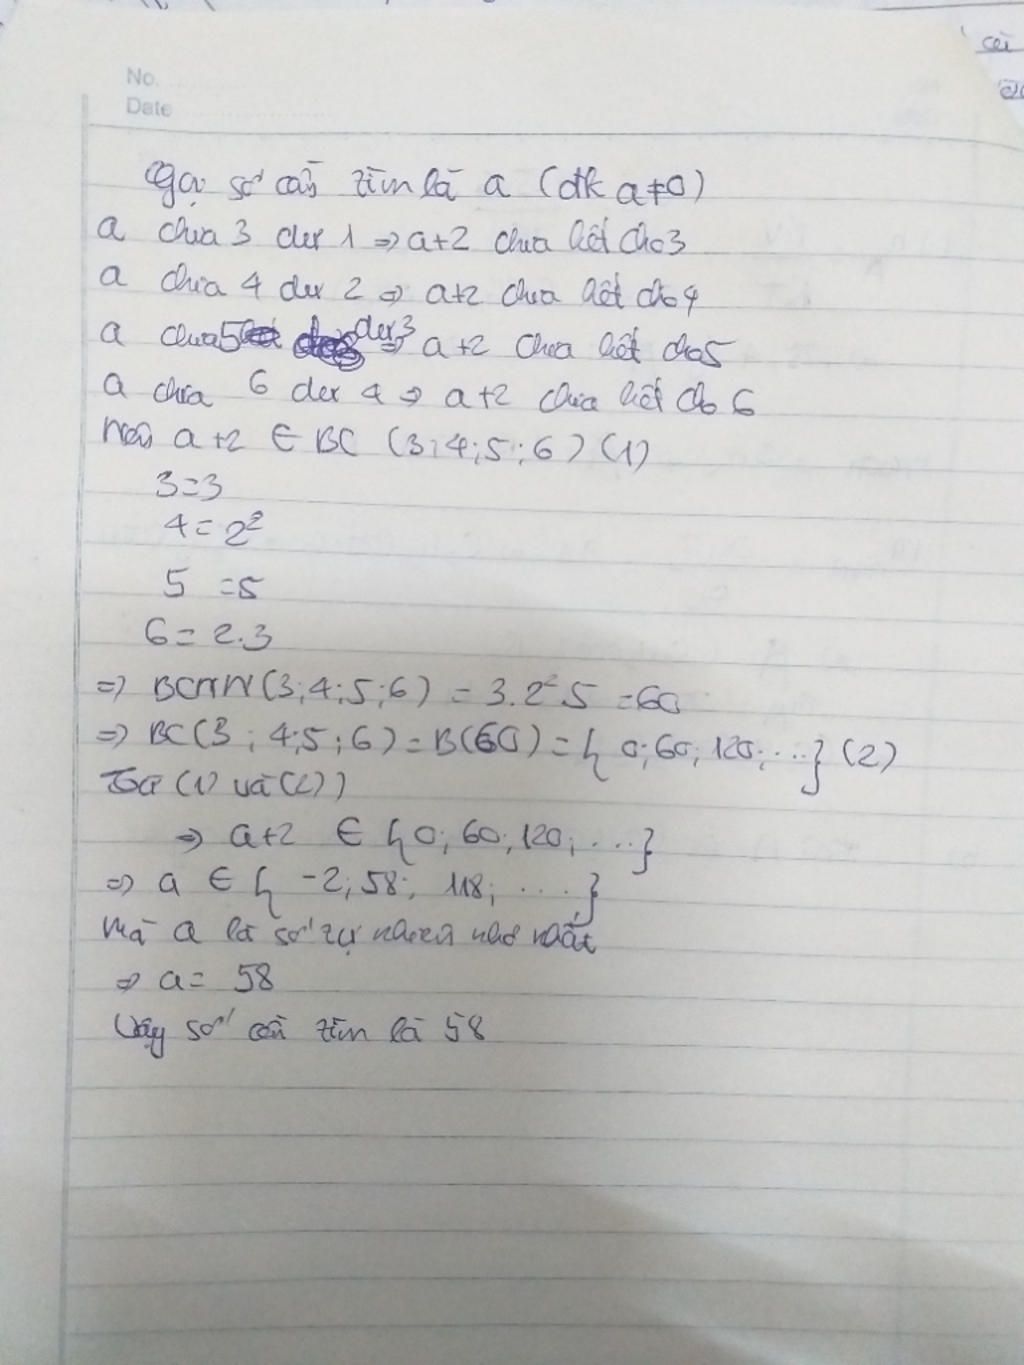 cái
No.
Date
Gọi số cần tìm là a (đk a≠0)
a chia 3 dư 1 => a+2 chia hết cho 3
a chia 4 dư 2 => a+2 chia hết cho 4
a chia 5 dư 3 => a+2 chia hết cho 5
a chia 6 dư 4 => a+2 chia hết cho 6
nên a+2 ∈ BC (3;4;5;6) (1)
3=3
4=2²
5=5
6=2.3
=> BCNN(3;4;5;6) = 3.2².5 =60
=> BC(3;4;5;6)=B(60)={0;60;120;...} (2)
Từ (1) và (2))
=> a+2 ∈ {0;60;120;...}
=> a ∈ {-2;58;118;....}
mà a là số tự nhiên nhỏ nhất
=> a= 58
Vậy số cần tìm là 58